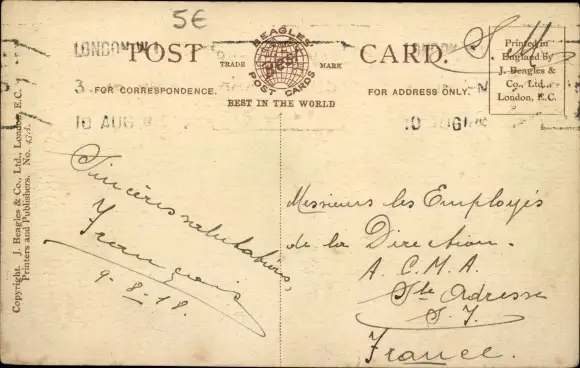 5€
LONDON. W.1
POST CARD.
BEAGLES'
TRADE Best MARK
POST CARDS
FOR CORRESPONDENCE.
FOR ADDRESS ONLY.
BEST IN THE WORLD
10 AUG
S. M.
Printed in
England by
J. Beagles &
Co., Ltd.,
London, E.C.
Copyright. J. Beagles & Co., Ltd., London, E.C.
Printers and Publishers. No.
Sincères salutations,
Français
9-8-18.
Messieurs les Employés
de la Direction.
A. C. M. A.
Ste Adresse
S. I.
France.